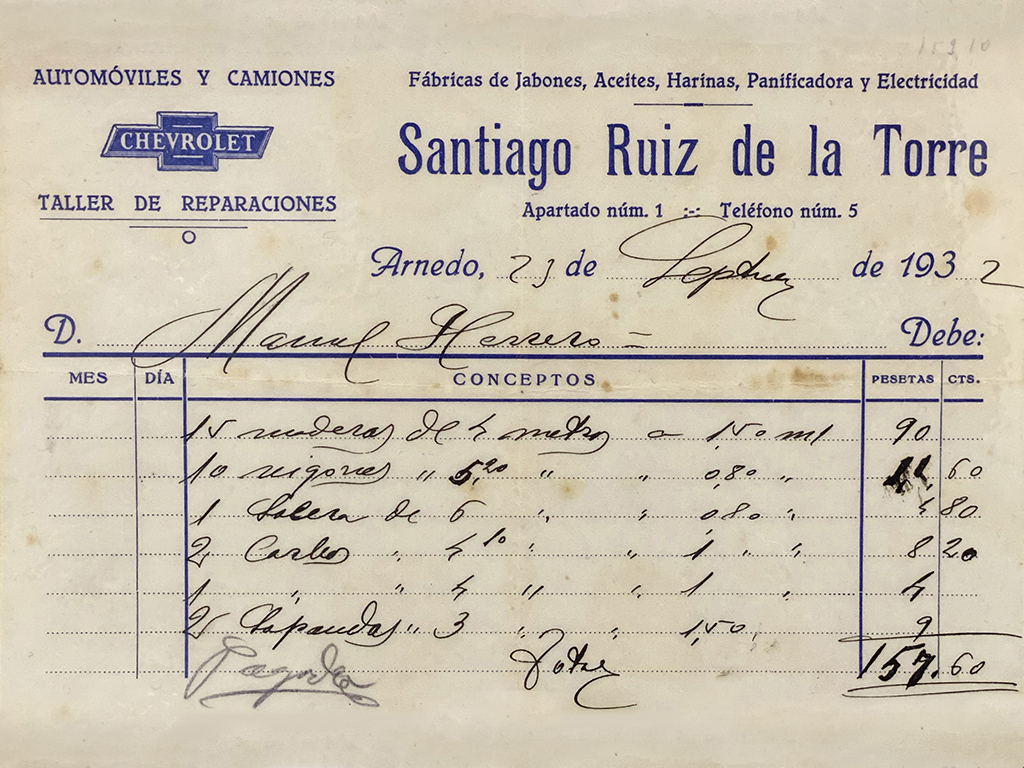 15910
AUTOMÓVILES Y CAMIONES
CHEVROLET
TALLER DE REPARACIONES
Fábricas de Jabones, Aceites, Harinas, Panificadora y Electricidad
Santiago Ruiz de la Torre
Apartado núm. 1 :-: Teléfono núm. 5
Arnedo, 23 de Septbre de 1932
D. Manuel Herrero = Debe:
MES DÍA CONCEPTOS PESETAS CTS.
15 maderas de 4 metros a 1,50 ml 90
10 vigones " 5,20 " " 0,80 " 41 60
1 Solera de 6 " " 0,80 " 4 80
2 " 4,10 " " 1 " " 8 20
1 " " 4 " 1 " 4
2 " 3 " " 1,50 9
Total 157,60
Pagado